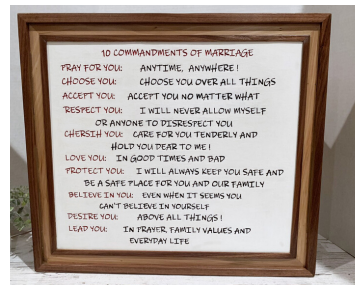 10 COMMANDMENTS OF MARRIAGE
PRAY FOR YOU: ANYTIME, ANYWHERE!
CHOOSE YOU: CHOOSE YOU OVER ALL THINGS
ACCEPT YOU: ACCEPT YOU NO MATTER WHAT
RESPECT YOU: I WILL NEVER ALLOW MYSELF
OR ANYONE TO DISRESPECT YOU
CHERSIH YOU: CARE FOR YOU TENDERLY AND
HOLD YOU DEAR TO ME!
LOVE YOU: IN GOOD TIMES AND BAD
PROTECT YOU: I WILL ALWAYS KEEP YOU SAFE AND
BE A SAFE PLACE FOR YOU AND OUR FAMILY
BELIEVE IN YOU: EVEN WHEN IT SEEMS YOU
CAN'T BELIEVE IN YOURSELF
DESIRE YOU: ABOVE ALL THINGS!
LEAD YOU: IN PRAYER, FAMILY VALUES AND
EVERYDAY LIFE